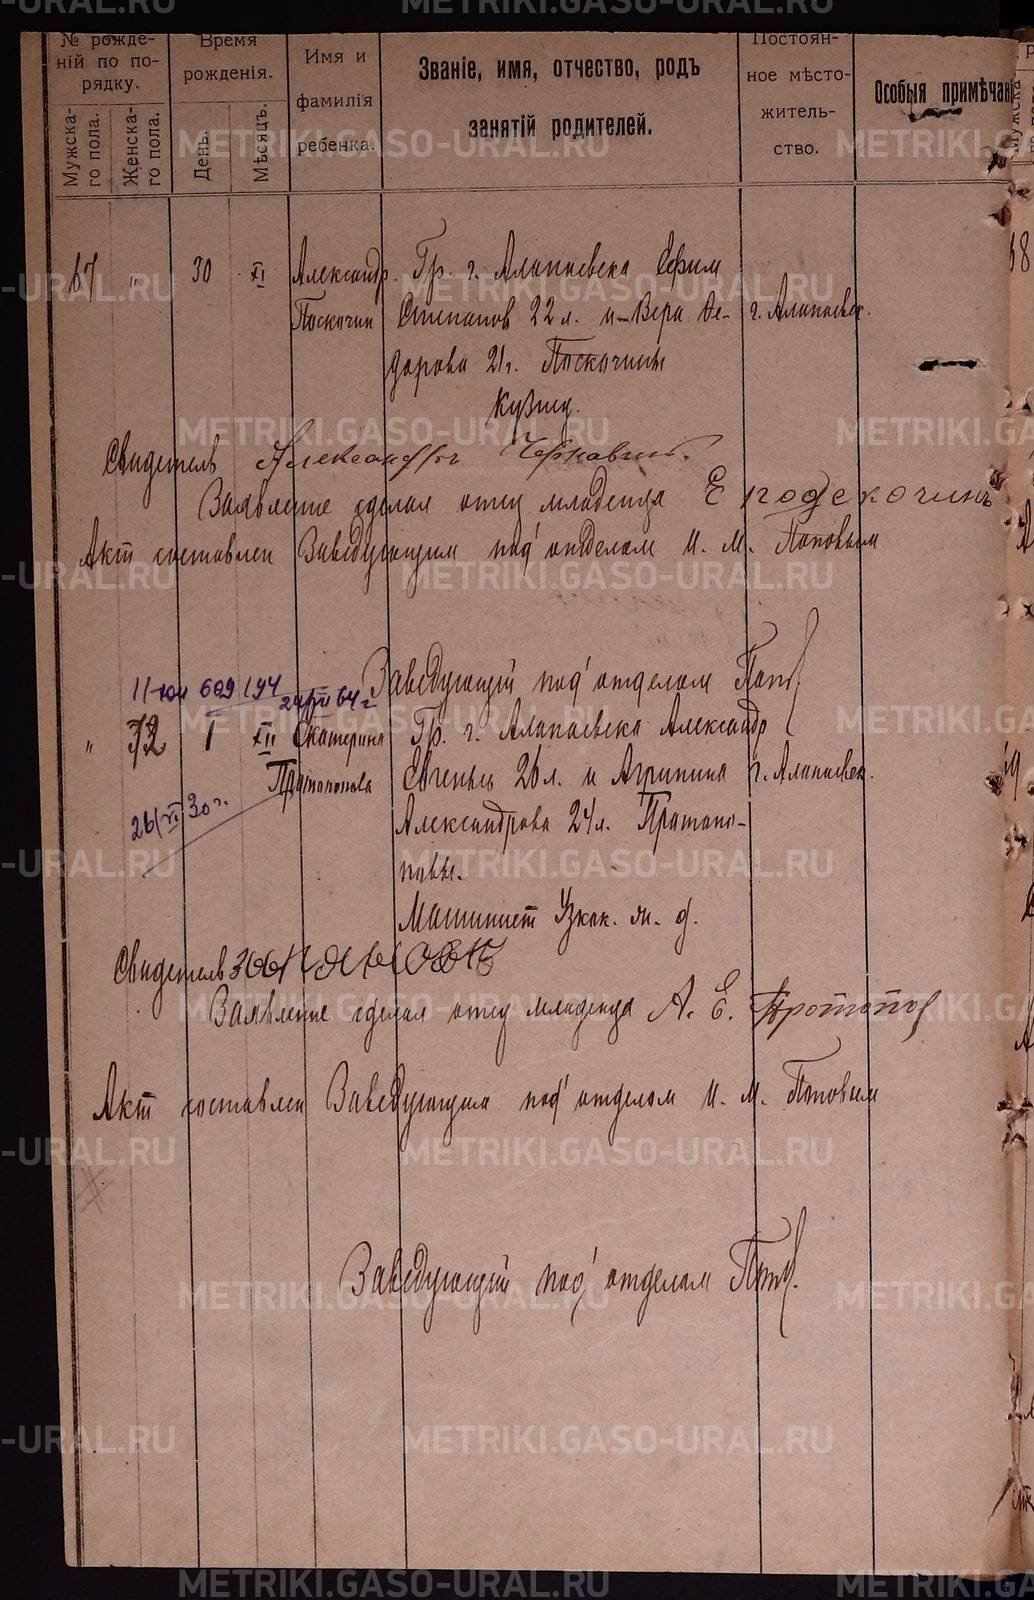 № рожде-
ній по по-
рядку.
Мужска-
го пола.
Женска-
го пола.
Время
рожденія.
День.
Мѣсяцъ.
Имя и
фамилія
ребенка.
Званіе, имя, отчество, родъ
занятій родителей.
Постоян-
ное мѣсто-
житель-
ство.
Особыя примѣчані
67 " 30 XI Александр. Гр. г. Алапаевска Ефим
Поскочин Степанов 22 л. и Вера Фе- г. Алапаевск.
дорова 21 г. Поскочины
Кузнец.
Свидетель Александр
Заявление сделал отец младенца Е подскочинъ
Акт составлен Заведующим под'отделом И. М. Поповым
Заведующий под'отделом Поп
609 194
24/VII 64 г
" 72 1 XII Екатерина Гр. г. Алапаевска Александр
Протопопова Евгеньев 26 л. и Агрипина г. Алапаевск.
26/VI 30 г. Александрова 24 л. Протопо-
повы.
Машинист Узкок. ж. д.
Свидетель
Заявление сделал отец младенца А. Е. Протопоп
Акт составлен Заведующим под'отделом И. М. Поповым
Заведующий под'отделом Поп
METRIKI.GASO-URAL.RU